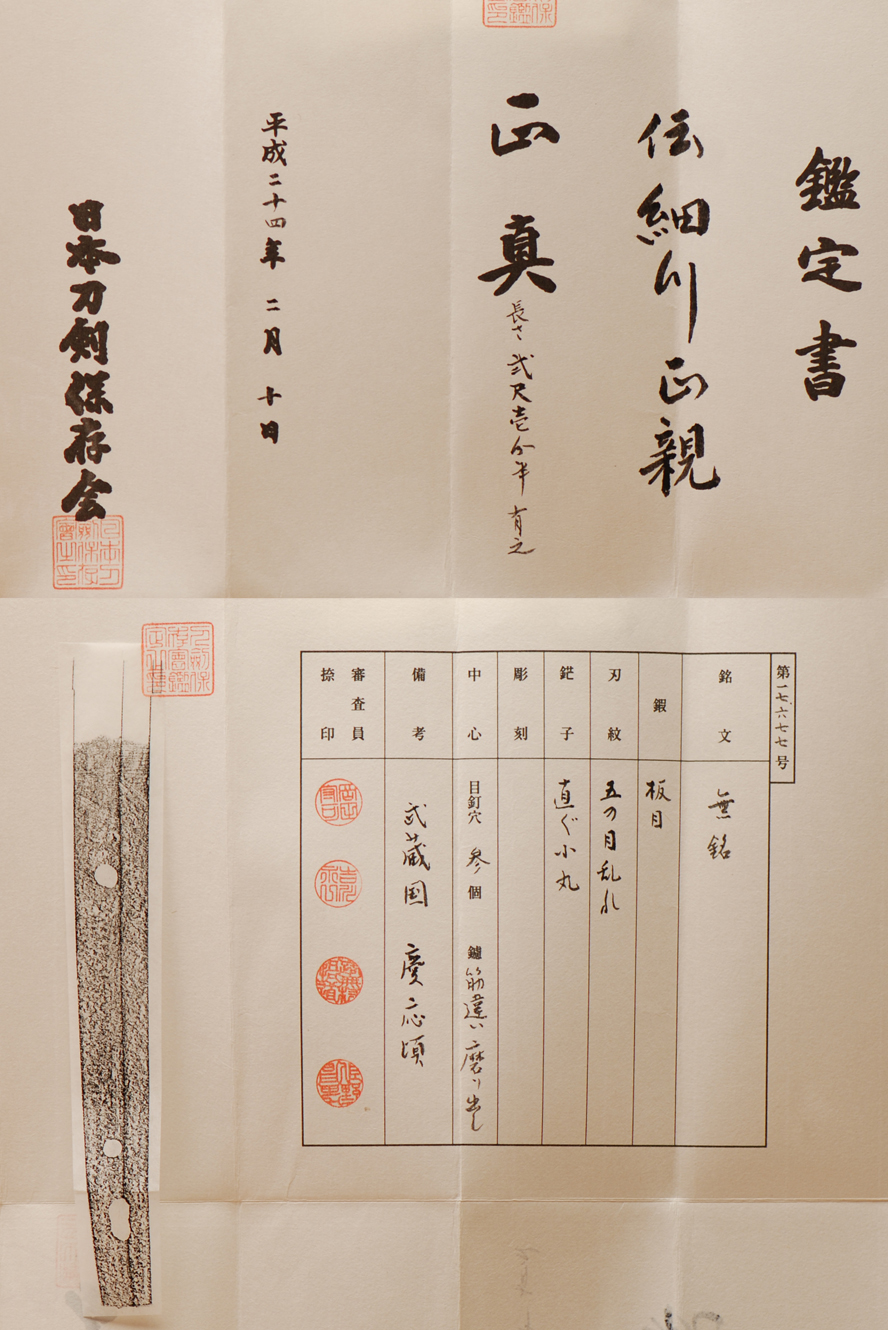 鑑定書
伝細川正親
正真
長さ弐尺壱分半有之
平成二十四年二月十日
日本刀剣保存会
第一七、六七七号
銘文
無銘
鍜
板目
刃紋
五の目乱れ
鋩子
直ぐ小丸
彫刻
中心
目釘穴 参個
鑢 筋違い磨り出し
備考
武蔵国 慶応頃
審査員
捺印